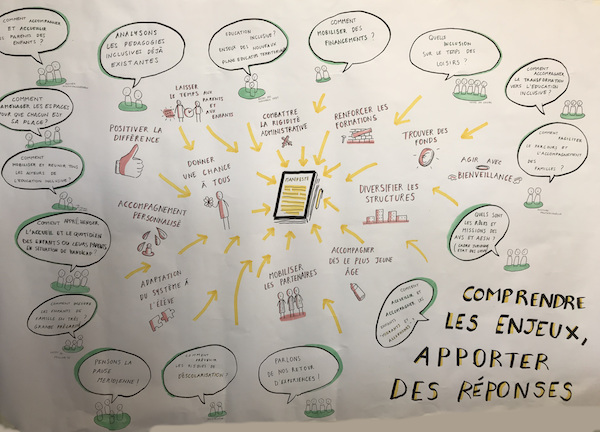 COMMENT ACCOMPAGNER
ET ACCUEILLIR
LES PARENTS DES
ENFANTS ?
ANALYSONS
LES PEDAGOGIES
INCLUSIVES DÉJÀ
EXISTANTES
EDUCATION
INCLUSIVE ?
ENJEUX DES NOUVEAUX
PLANS EDUCATIFS TERRITORIAUX
COMMENT
MOBILISER DES
FINANCEMENTS ?
QUELLE
INCLUSION
SUR LE TEMPS DES
LOISIRS ?
COMMENT ACCOMPAGNER
LA TRANSFORMATION
VERS L'ÉDUCATION
INCLUSIVE ?
COMMENT
AMÉNAGER LES ESPACES
POUR QUE CHACUN EST
SA PLACE ?
LAISSER
LE TEMPS
AUX
PARENTS
ET AUX
ENFANTS
COMBATTRE
LA RIGIDITÉ
ADMINISTRATIVE
RENFORCER LES
FORMATIONS
TROUVER DES
FONDS
POSITIVER LA
DIFFÉRENCE
COMMENT
LE PARCOURS ET
L'ACCOMPAGNEMENT
DES
FAMILLES ?
COMMENT
MOBILISER ET RÉUNIR TOUS
LES ACTEURS DE
L'ÉDUCATION INCLUSIVE ?
DONNER
UNE CHANCE
À TOUS
MANIFESTE
AGIR AVEC
BIENVEILLANCE
DIVERSIFIER LES
STRUCTURES
ACCOMPAGNEMENT
PERSONNALISÉ
QUELS SONT
LES RÔLES ET
MISSIONS DES
AVS ET AESH ?
COMMENT
L'ACCUEIL ET LE QUOTIDIEN
DES ENFANTS OU LEURS PARENTS
EN SITUATION DE HANDICAP ?
ADAPTATION
DU SYSTÈME À
L'ÉLÈVE
MOBILISER
LES PARTENAIRES
ACCOMPAGNER
DÈS LE PLUS JEUNE
ÂGE
COMMENT
LES ENFANTS DE
FAMILLE EN TRÈS
GRANDE PRÉCARITÉ
COMMENT
ACCUEILLIR ET
ACCOMPAGNER LES
ENFANTS
COMPRENDRE
LES ENJEUX,
APPORTER
DES RÉPONSES
PENSONS LA
PAUSE
MERIDIENNE !
COMMENT
PRÉVENIR
LES RISQUES DE
DÉSCOLARISATION ?
PARLONS
DE NOS RETOUR
D'EXPÉRIENCES !